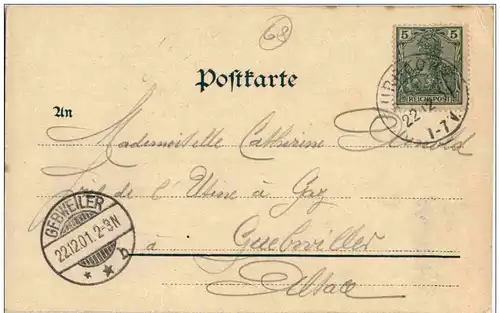 68
5 5
REICHSPOST
Postkarte
22.12
1-7V.
An
Mademoiselle Catherine Arnold
de l'Usine à Gaz
GEBWEILER
22.12.01.2-3N
* * b
à Guebwiller
Alsace